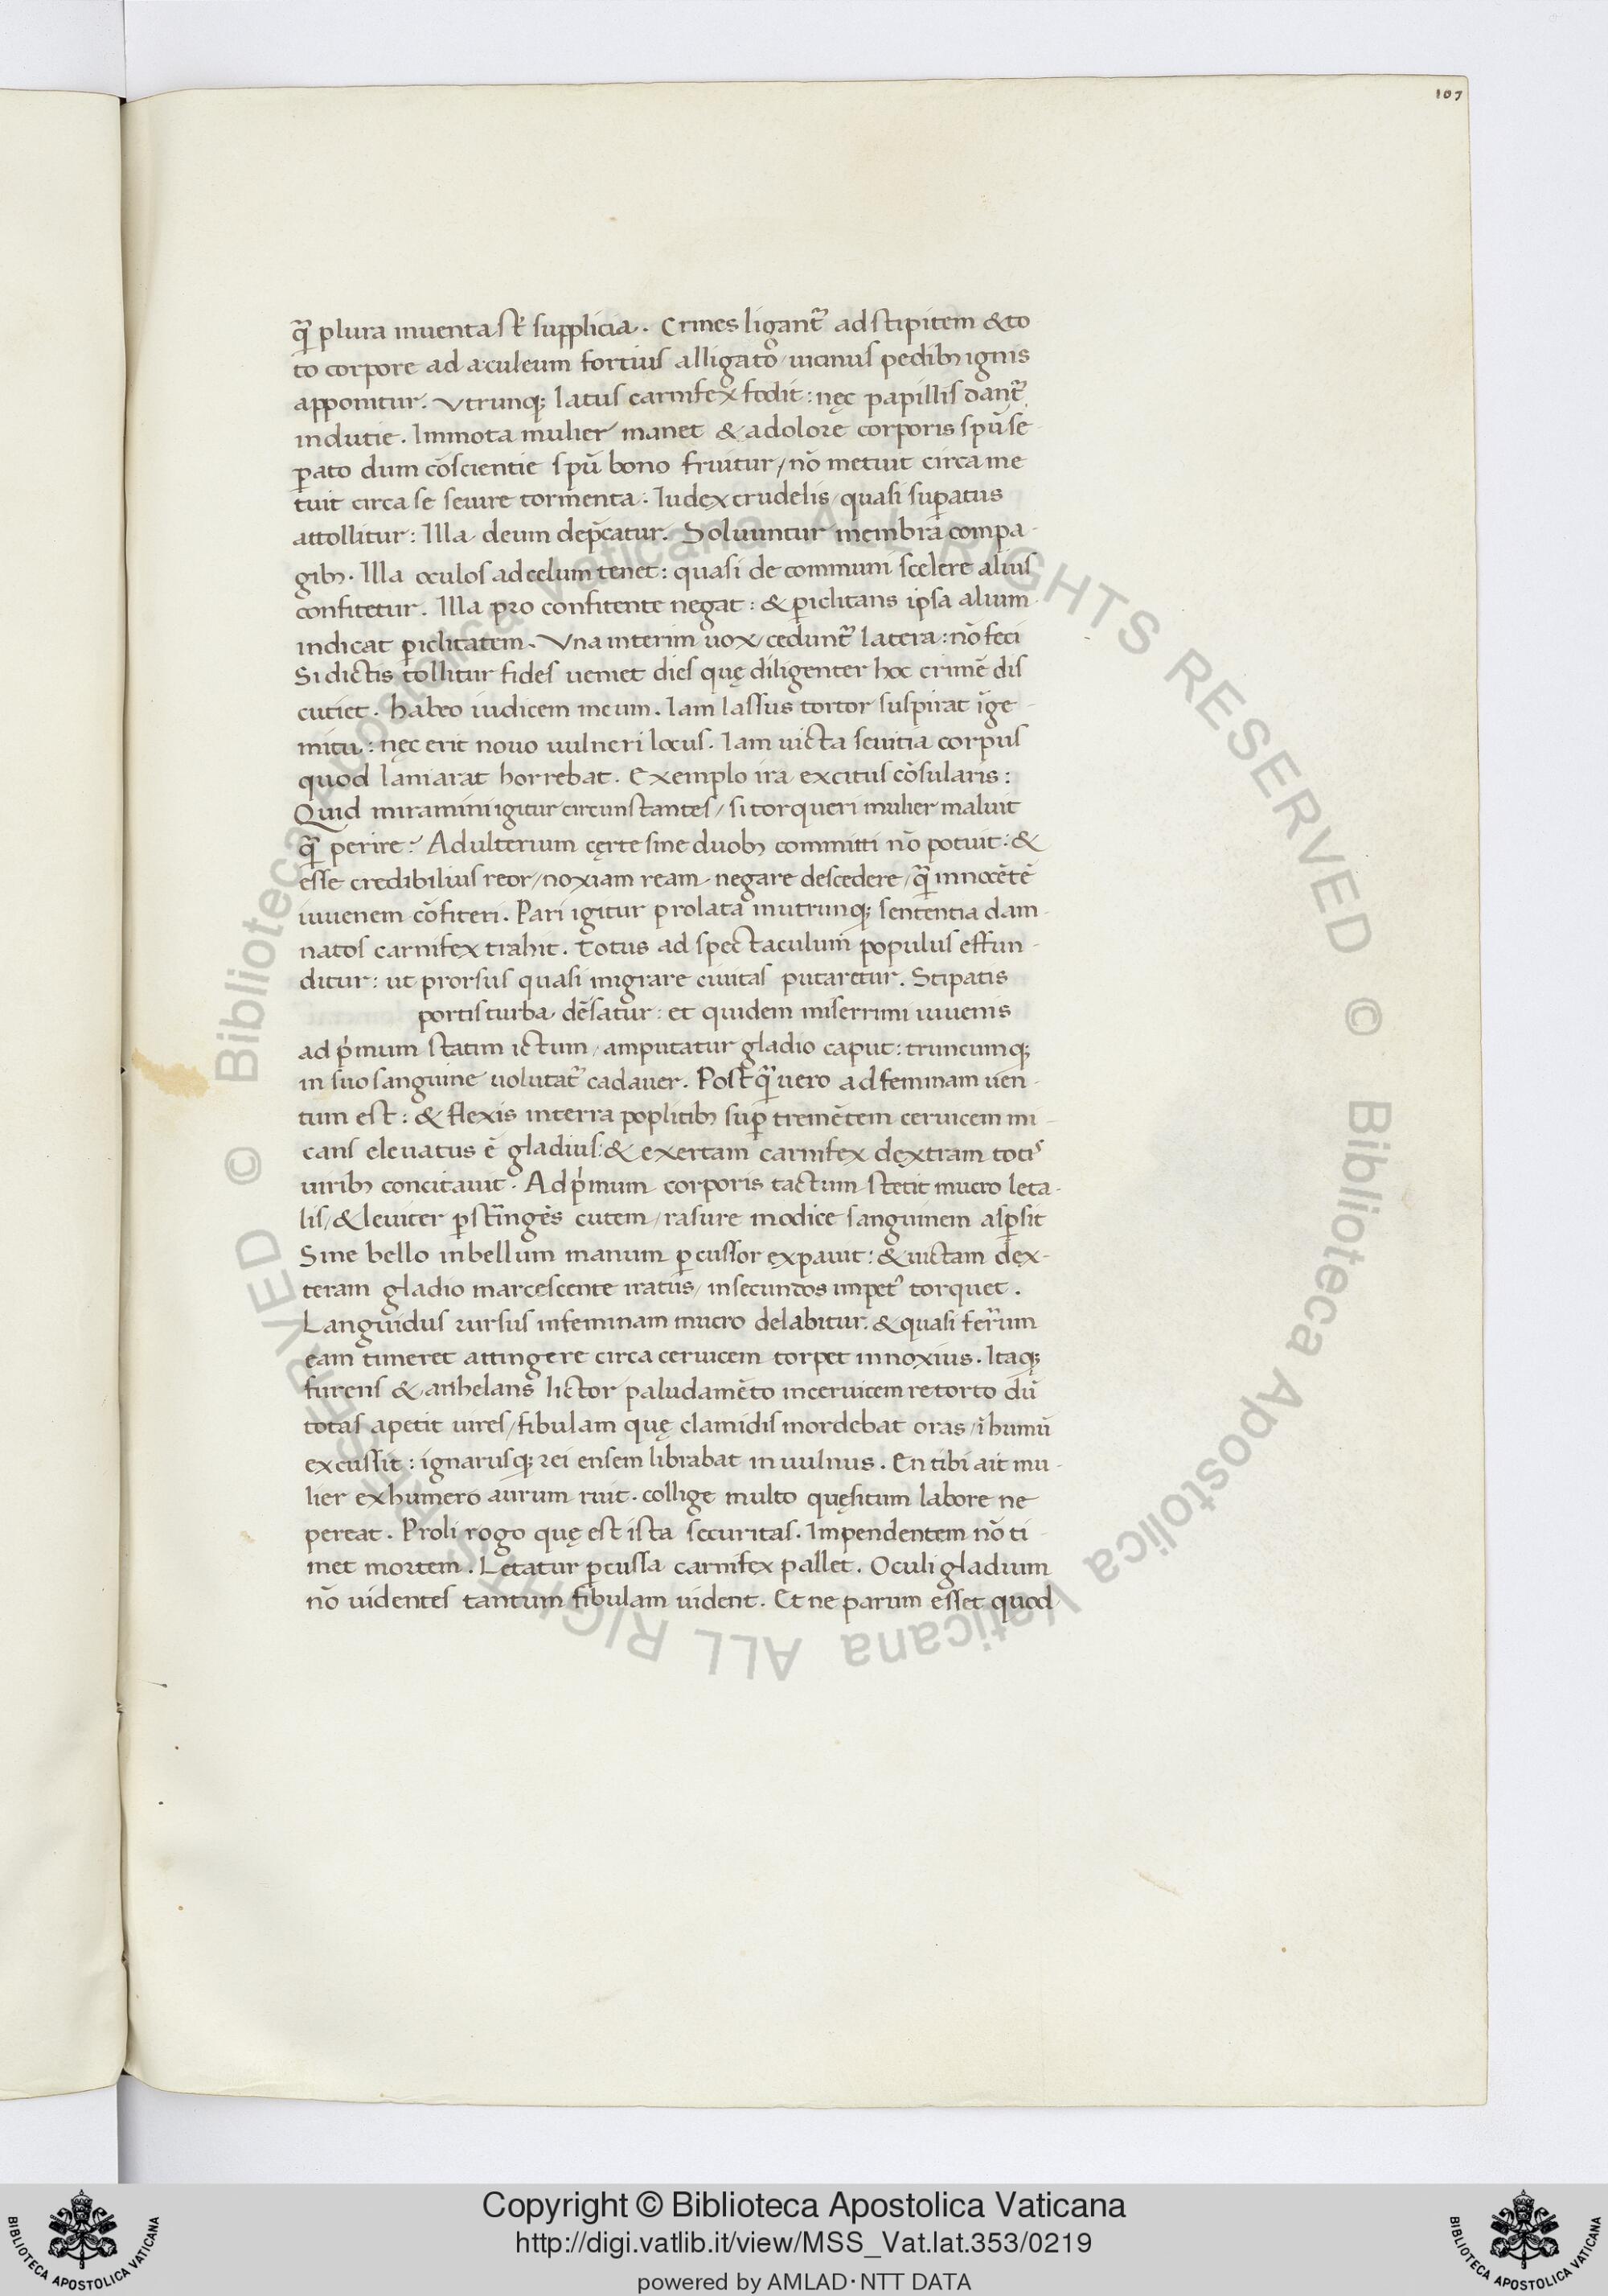 107
q̄ plura inuenta st̄ supplicia. Crines ligant̄ ad stipitem & to
to corpore ad aculeum fortius alligato / uicinus pedibꝫ ignis
apponitur. Vtrunqꝫ latus carnifex fodit: nęc papillis dant̄
indutie. Immota mulier manet & a dolore corporis spū se
ꝑato dum cōscientie spū bono fruitur / nō metuit circa me
tuit circa se seuire tormenta. Iudęx crudelis / quasi suꝑatus
attollitur: Illa deum dep̄catur. Soluuntur membra compa-
gibꝫ. Illa oculos ad celum tenet: quasi de communi scelere alius
confitetur. Illa pro confitente negat: & ꝑiclitans ipsa alium
indicat ꝑiclitatem. Vna interim uox / cedunt̄ latera: nō feci
Si dictis tollitur fides ueniet dies quę diligenter hoc crimē dis
cutiet. habeo iudicem meum. Iam lassus tortor suspirat īge-
mitu: nęc erit nouo uulneri locus. Iam uicta seuitia corpus
quod laniarat horrebat. Exemplo ira excitus cōsularis:
Quid miramini igitur circunstantes / si torqueri mulier maluit
q̄ perire? Adulterium cęrte sine duobꝫ committi nō potuit: &
esse credibilius reor / noxiam ream negare descedere / q̄ innocētē
iuuenem cōfiteri. Pari igitur prolata in utrunqꝫ sententia dam-
natos carnifex trahit. Totus ad spectaculum populus effun-
ditur: ut prorsus quasi migrare ciuitas putaretur. Stipatis
portis turba dēsatur: et quidem miserrimi iuuenis
ad pͥmum statim ictum / amputatur gladio caput: truncumqꝫ
in suo sanguine uolutat̄ cadauer. Postq̄ uero ad feminam uen-
tum est: & flexis in terra poplitibꝫ suꝑ tremētem ceruicem mi-
cans eleuatus ē gladius: & exertam carnifex dęxtram totis
uiribꝫ concitauit. Ad pͥmum corporis tactum stetit mucro leta-
lis / & leuiter ꝑstringēs cutem / rasure modice sanguinem asꝑsit
Sine bello inbellum manum ꝑcussor expauit: & uictam dex-
teram gladio marcescente iratus / in secundos impet᾽ torquet.
Languidus rursus in feminam mucro delabitur. & quasi ferrum
eam timeret attingere circa ceruicem torpet innoxius. Itaqꝫ
furens & anhelans lictor paludamēto in ceruicem retorto dū
totas apetit uires / fibulam quę clamidis mordebat oras / ī humū
excussit: ignarusqꝫ rei ensem librabat in uulnus. En tibi ait mu-
lier ex humero aurum ruit. collige multo quęsitum labore ne
pereat. Proli rogo quę est ista securitas. Impendentem nō ti
met mortem. Lętatur ꝑcussa carnifex pallet. Oculi gladium
nō uidentes tantum fibulam uident. Et ne parum esset quod
© Biblioteca Apostolica Vaticana ALL RIGHTS RESERVED © Biblioteca Apostolica Vaticana ALL RIGHTS RESERVED
Copyright © Biblioteca Apostolica Vaticana
http://digi.vatlib.it/view/MSS_Vat.lat.353/0219
powered by AMLAD·NTT DATA
BIBLIOTECA APOSTOLICA VATICANA
BIBLIOTECA APOSTOLICA VATICANA